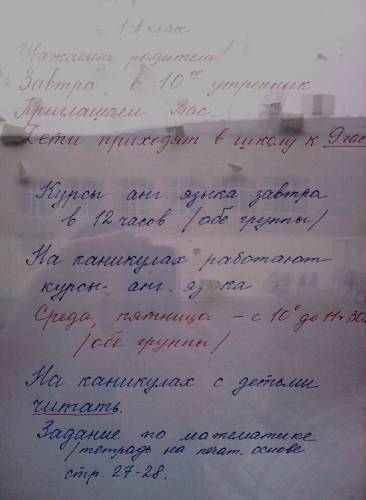 1-в класс
Уважаемые родители!
Завтра, в 10 00 утренник
Приглашаем Вас.
Дети приходят в школу к 9 час
Курсы анг. языка завтра
в 12 часов /обе группы/
На каникулах работают
курсы анг. яз ка
Среда, пятница - с 10 0 до 11ч 30м
/обе группы/
На каникулах с детьми
читать.
Задание по математике
/тетрадь на печат. основе
стр. 27-28.